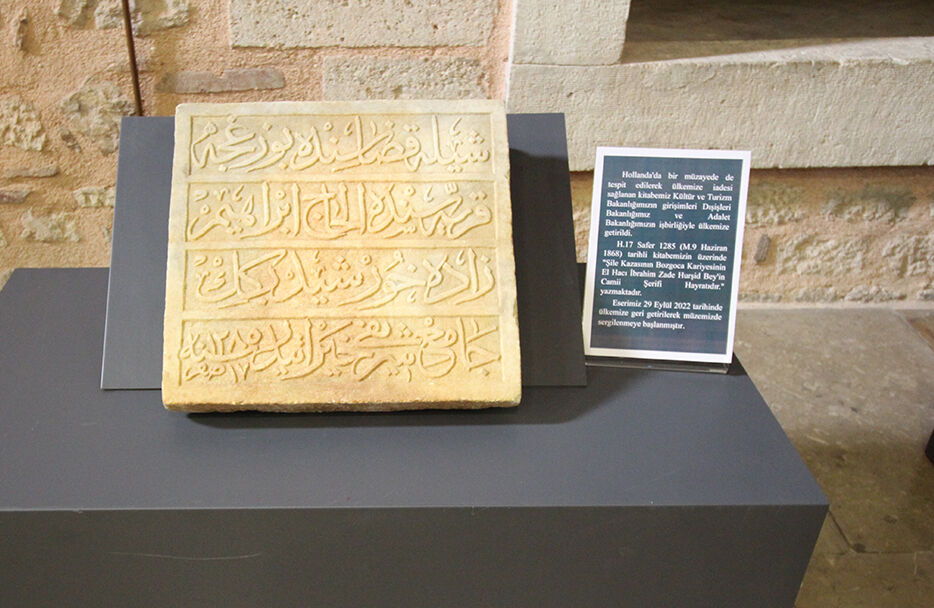 شيله قضاسنده بوزغجه
قريه سنده الحاج ابراهيم
زاده خورشيد بكك
جامع شريف خيراتيدر سنه ١٢٨٥
Hollanda'da bir müzayede de
tespit edilerek ülkemize iadesi
sağlanan kitabemiz Kültür ve Turizm
Bakanlığımızın girişimleri Dışişleri
Bakanlığımız ve Adalet
Bakanlığımızın işbirliğiyle ülkemize
getirildi.
H.17 Safer 1285 (M.9 Haziran
1868) tarihli kitabemizin üzerinde
"Şile Kazasının Bozgoca Kariyesinin
El Hacı İbrahim Zade Hurşid Bey'in
Camii Şerifi Hayratıdır."
yazmaktadır.
Eserimiz 29 Eylül 2022 tarihinde
ülkemize geri getirilerek müzemizde
sergilenmeye başlanmıştır.